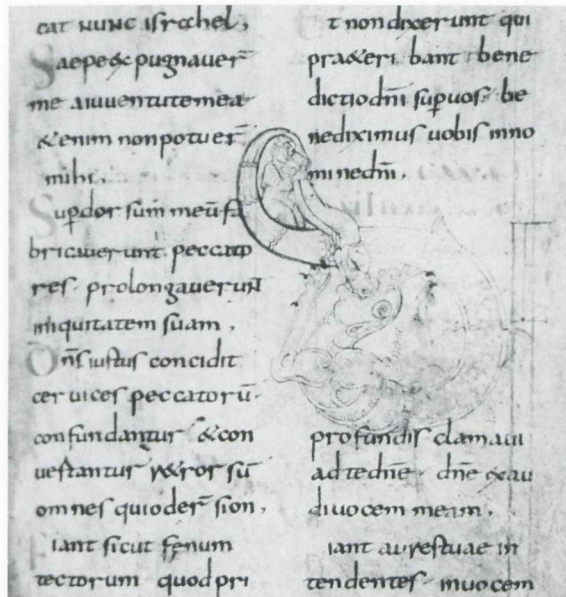 cat NUNC israhel,
Saepe & pugnauer̄
me a iuuentute mea
& enim non potuer̄
mihi.
Sup dorsum̄ meū fa
bricauerunt peccato
res prolongauerunt
iniquitatem suam,
Dn̄s iustus concidit
ceruices peccatorū
confundantur & con
uertantur r&rorsū
omnes qui oder̄ sion,
Fiant sicut fenum
tectorum quod pri
&t non dixerunt qui
praeteribant bene
dictio dn̄i sup uos be
nediximus uobis in no
mine dn̄i,
profundis clamaui
ad te dn̄e dn̄e exau
di uocem meam,
Fiant aures tuae in
tendentes in uocem